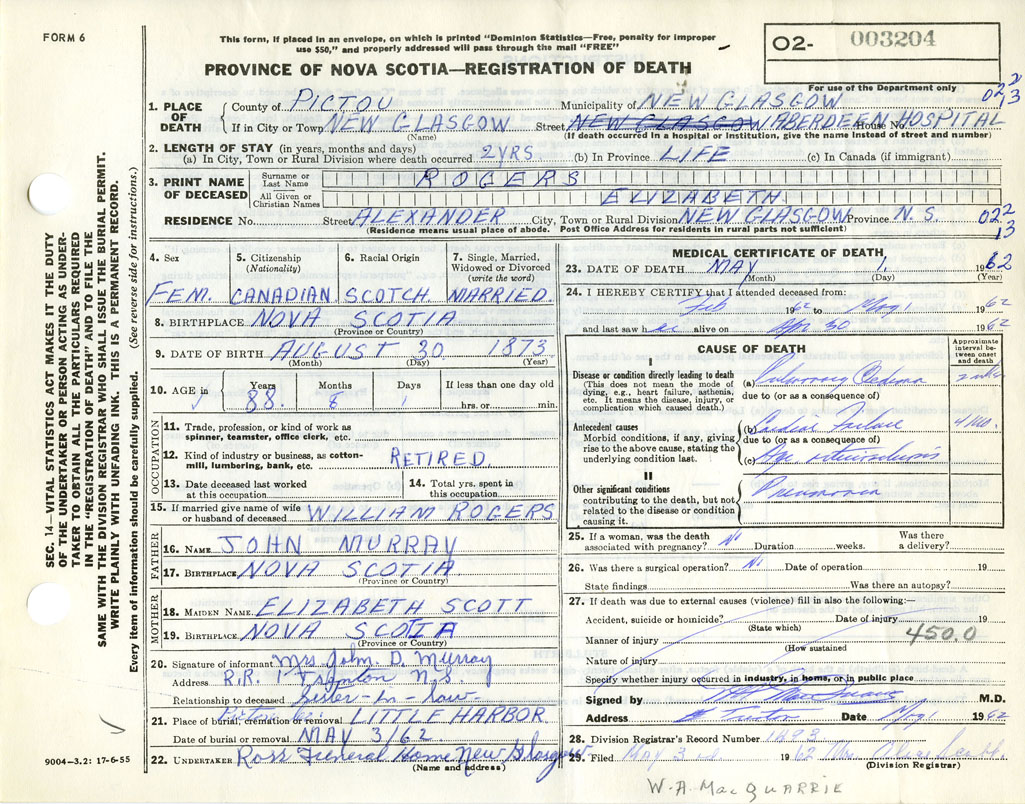 FORM 6
This form, if placed in an envelope, on which is printed "Dominion Statistics—Free, penalty for improper
use $50," and properly addressed will pass through the mail "FREE"
02- 003204
PROVINCE OF NOVA SCOTIA—REGISTRATION OF DEATH
For use of the Department only
022
13
1. PLACE OF DEATH
County of PICTOU Municipality of NEW GLASGOW
If in City or Town NEW GLASGOW Street NEW GLASGOW ABERDEEN HOSPITAL House No.
(Name) (If death occurred in a hospital or institution, give the name instead of street and number)
2. LENGTH OF STAY (in years, months and days)
(a) In City, Town or Rural Division where death occurred 2 YRS (b) In Province LIFE (c) In Canada (if immigrant)
3. PRINT NAME OF DECEASED
Surname or Last Name ROGERS
All Given or Christian Names ELIZABETH
RESIDENCE No. Street ALEXANDER City, Town or Rural Division NEW GLASGOW Province N.S. 022
13
(Residence means usual place of abode. Post Office Address for residents in rural parts not sufficient)
4. Sex
FEM.
5. Citizenship
(Nationality)
CANADIAN
6. Racial Origin
SCOTCH
7. Single, Married,
Widowed or Divorced
(write the word)
MARRIED.
8. BIRTHPLACE NOVA SCOTIA
(Province or Country)
9. DATE OF BIRTH AUGUST 30 1873
(Month) (Day) (Year)
10. AGE in Years Months Days If less than one day old
88. 8 1 hrs. or min.
OCCUPATION
11. Trade, profession, or kind of work as
spinner, teamster, office clerk, etc.
12. Kind of industry or business, as cotton-
mill, lumbering, bank, etc. RETIRED.
13. Date deceased last worked
at this occupation
14. Total yrs. spent in
this occupation
15. If married give name of wife
or husband of deceased WILLIAM ROGERS
FATHER
16. NAME JOHN MURRAY
17. BIRTHPLACE NOVA SCOTIA
(Province or Country)
MOTHER
18. MAIDEN NAME ELIZABETH SCOTT
19. BIRTHPLACE NOVA SCOTIA
(Province or Country)
20. Signature of informant Mrs John D. Murray
Address R.R. 1 Trenton N.S.
Relationship to deceased Sister-in-law
21. Place of burial, cremation or removal LITTLE HARBOR.
Date of burial or removal MAY 3/62.
22. UNDERTAKER Ross Funeral Home New Glasgow
(Name and address)
MEDICAL CERTIFICATE OF DEATH
23. DATE OF DEATH MAY 1. 1962
(Month) (Day) (Year)
24. I HEREBY CERTIFY that I attended deceased from:
Feb 1962 to May 1 1962
and last saw her alive on Apr 30 1962
CAUSE OF DEATH
Approximate
interval be-
tween onset
and death
I
Disease or condition directly leading to death
(This does not mean the mode of
dying, e.g., heart failure, asthenia,
etc. It means the disease, injury, or
complication which caused death.)
(a) Pulmonary Oedema
due to (or as a consequence of)
Antecedent causes
Morbid conditions, if any, giving
rise to the above cause, stating the
underlying condition last.
(b) Cardiac Failure 4 mo.
due to (or as a consequence of)
(c) Age
II
Other significant conditions
contributing to the death, but not
related to the disease or condition
causing it.
Pneumonia
25. If a woman, was the death
associated with pregnancy? No Duration weeks. Was there
a delivery?
26. Was there a surgical operation? No Date of operation 19
State findings Was there an autopsy?
27. If death was due to external causes (violence) fill in also the following:—
Accident, suicide or homicide? Date of injury 19
(State which)
Manner of injury 450.0
(How sustained
Nature of injury
Specify whether injury occurred in industry, in home, or in public place
Signed by M.D.
Address Trenton Date May 1 1962
28. Division Registrar's Record Number 1493
29. Filed MAY 3rd. 1962 Mrs
(Division Registrar)
W.A. MacQUARRIE
SEC. 14—VITAL STATISTICS ACT MAKES IT THE DUTY
OF THE UNDERTAKER OR PERSON ACTING AS UNDER-
TAKER TO OBTAIN ALL THE PARTICULARS REQUIRED
IN THE "REGISTRATION OF DEATH" AND TO FILE THE
SAME WITH THE DIVISION REGISTRAR WHO SHALL ISSUE THE BURIAL PERMIT.
WRITE PLAINLY WITH UNFADING INK. THIS IS A PERMANENT RECORD.
Every item of information should be carefully supplied. (See reverse side for instructions.)
9004-3.2: 17-6-55